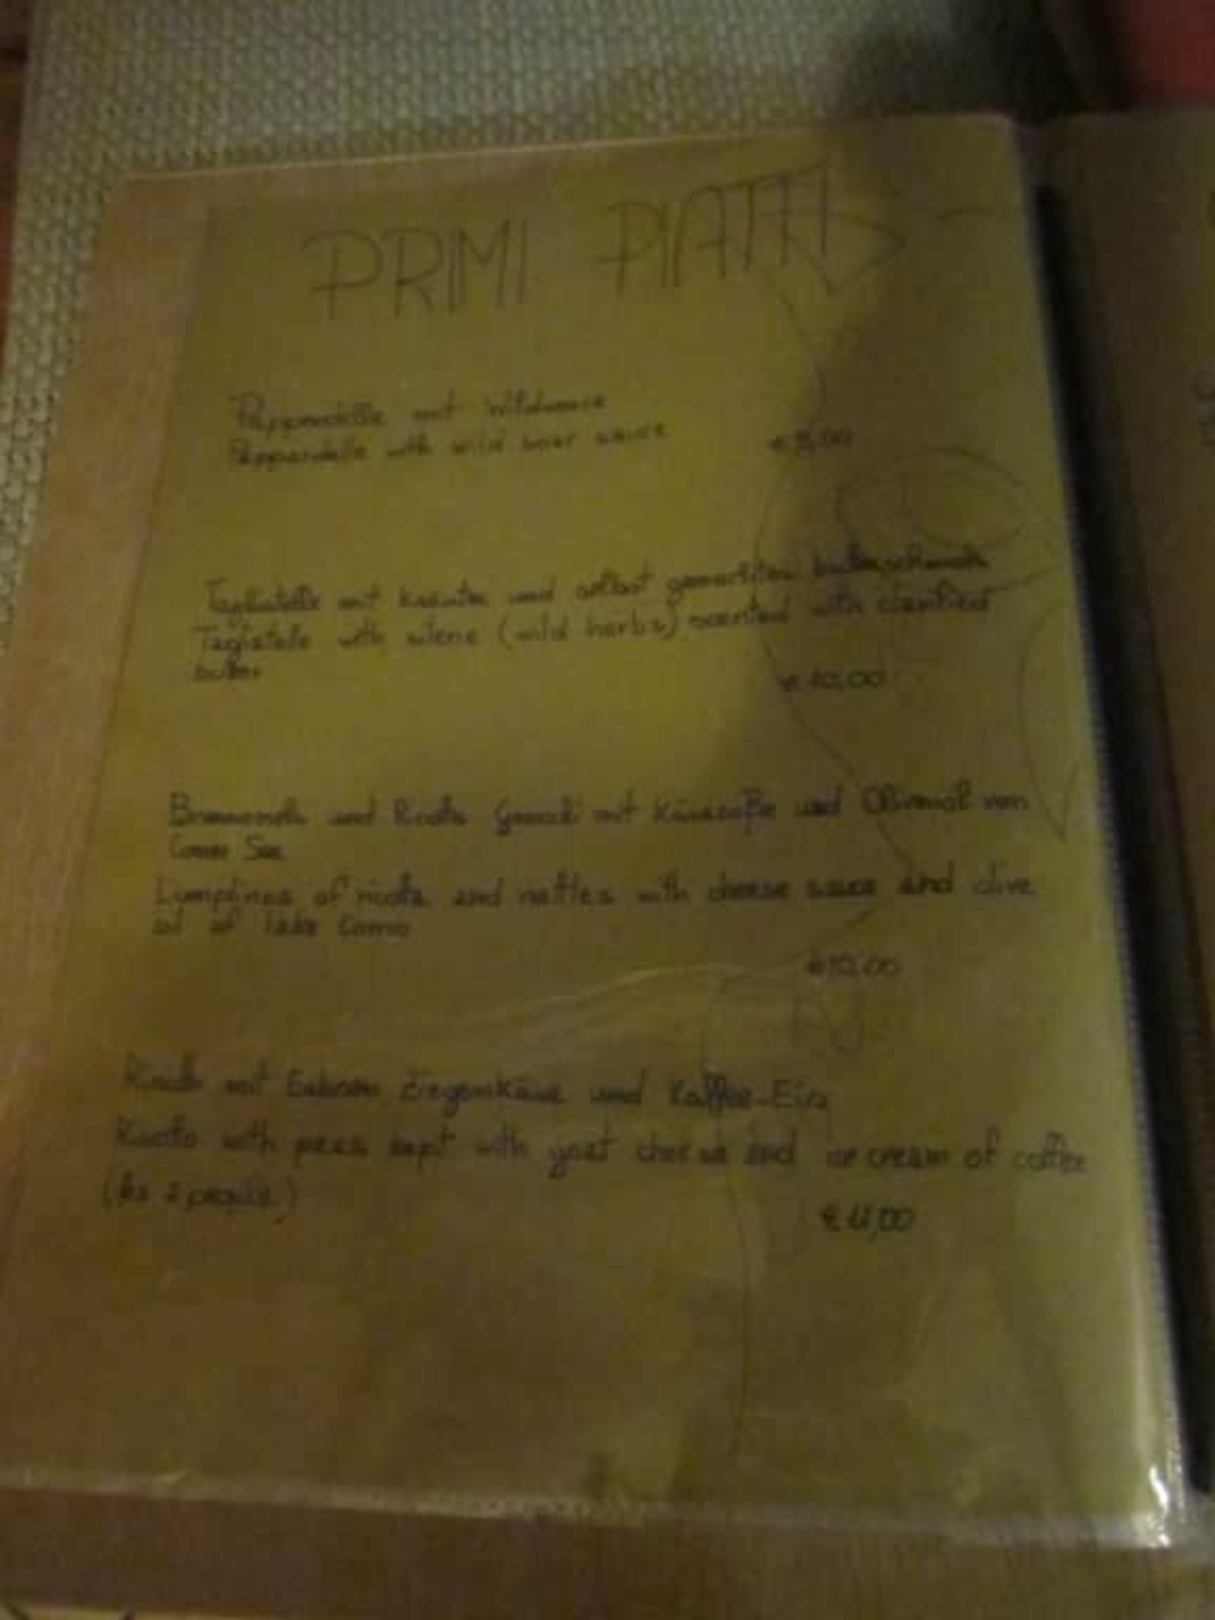 PRIMI PIATTI
Pappardelle mit
Pappardelle with wild boar sauce
Tagliatelle mit Kräuter und selbst gemachten butterschmalz
Tagliatelle with silene (wild herbs) scented with clarified
butter
€ 10,00
und Ricotta Gnocchi mit Käsesoße und Olivenöl vom
Comer See
Lumplings of ricotta and nettles with cheese sauce and olive
oil of lake Como
€ 10,00
mit Erbsen Ziegenkäse und Kaffee-Eis
with peas kept with goat cheese and ice cream of coffee